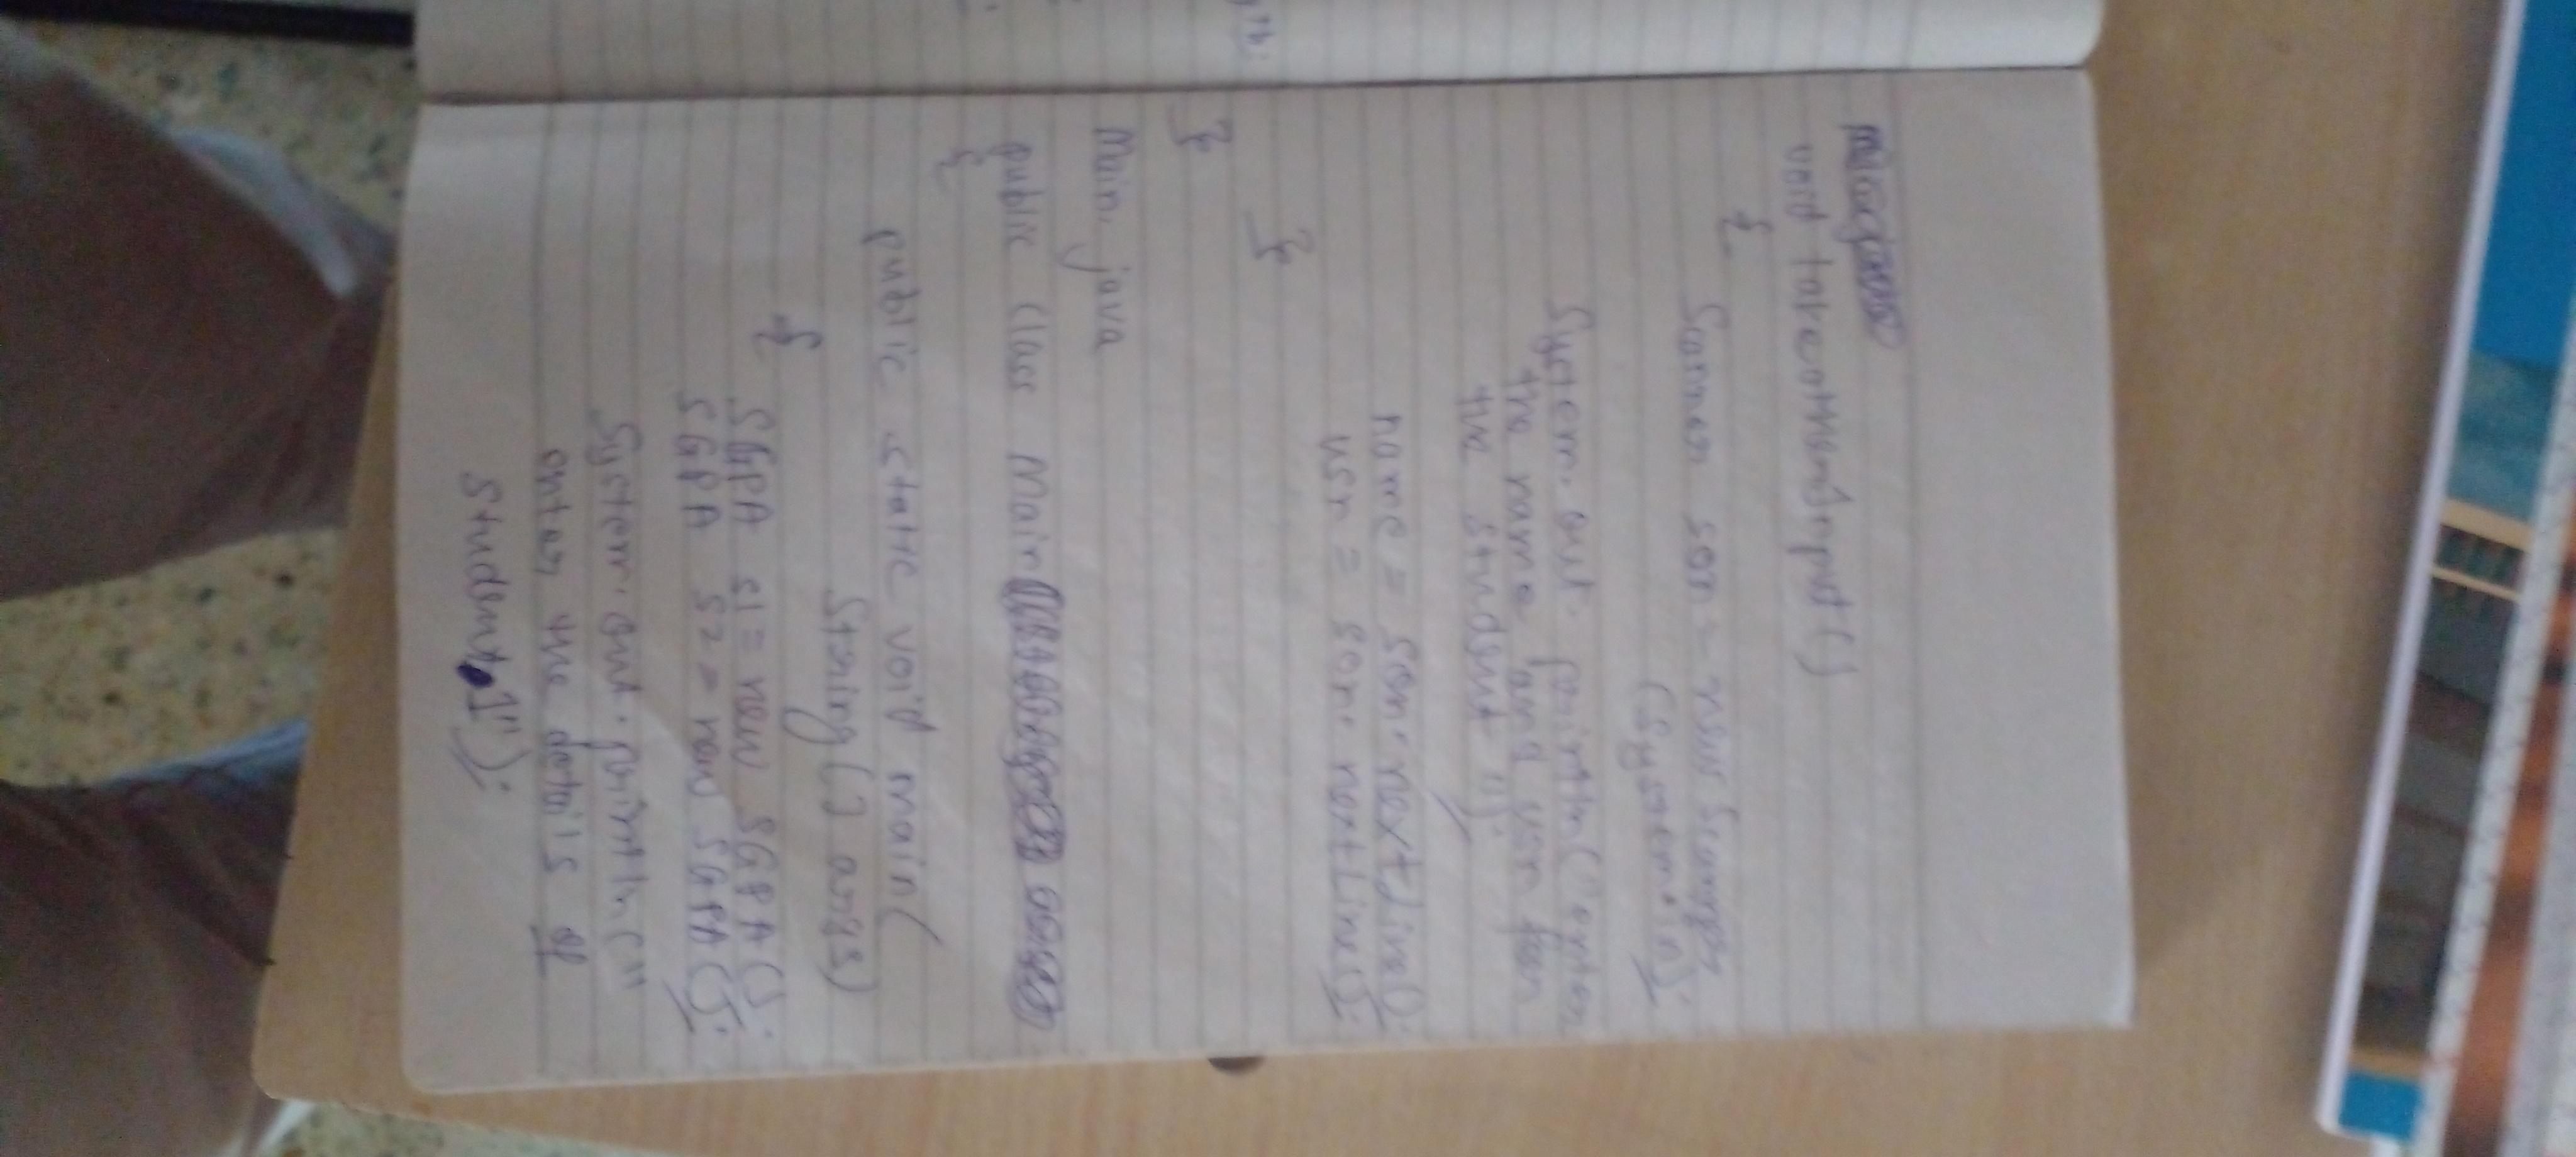 void takeotherinput()
{
Scanner scn = new Scanner
(System.in);
System.out.println("enter
the name and usn for
the student");
name = scn.nextLine();
usn = scn.nextLine();
}
}
Main.java
public class Main
{
public static void main(
String[] args)
{
SGPA s1 = new SGPA();
SGPA s2 = new SGPA();
System.out.println("
enter the details of
student 1");